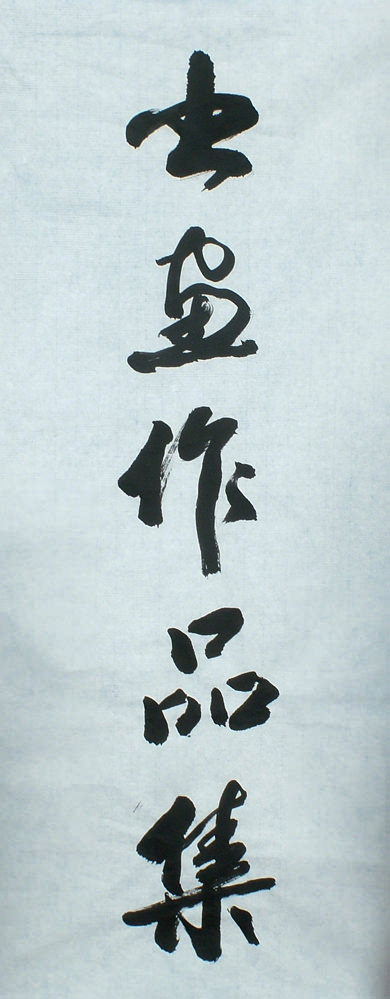 书画作品集